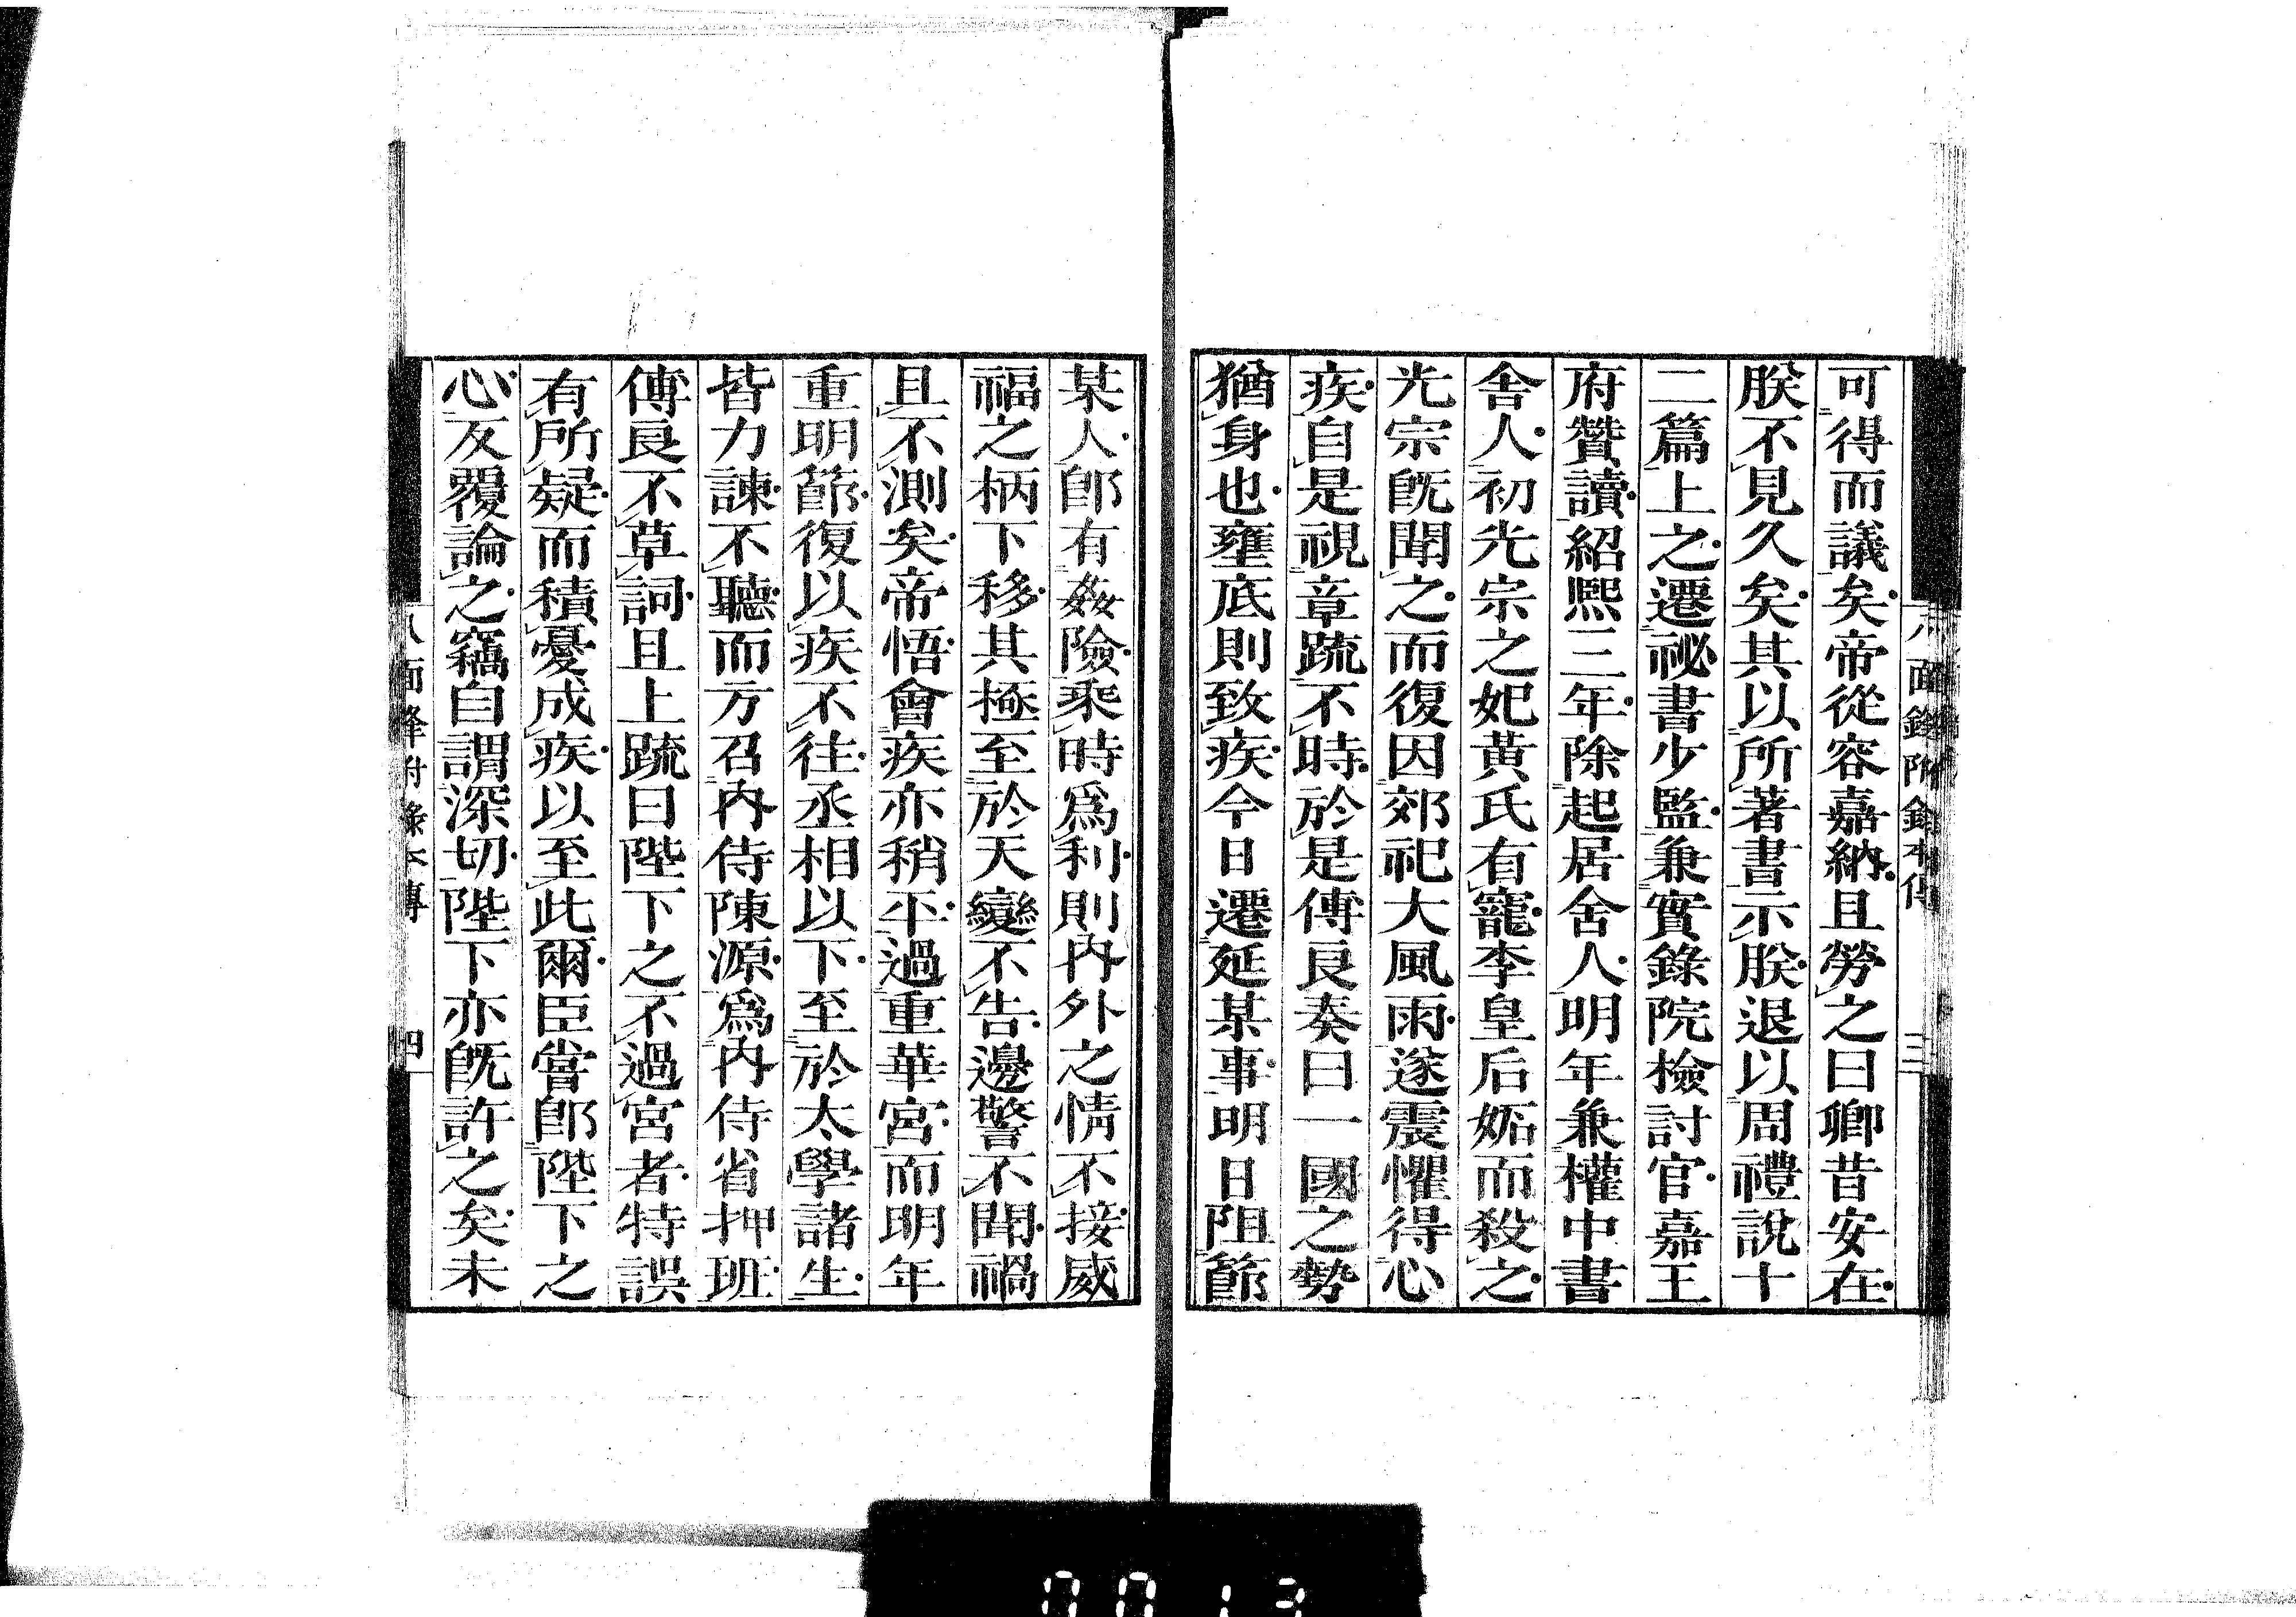 八面鋒附錄本傳 三
可得而議矣帝從容嘉納且勞之曰卿昔安在
朕不見久矣其以所著書示朕退以周禮說十
二篇上之遷祕書少監兼實錄院檢討官嘉王
府贊讀紹熙三年除起居舍人明年兼權中書
舍人初光宗之妃黃氏有寵李皇后妬而殺之
光宗旣聞之而復因郊祀大風雨遂震懼得心
疾自是視章疏不時於是傅良奏曰一國之勢
猶身也壅底則致疾今日遷延某事明日阻節
某人卽有姦險乘時爲利則內外之情不接威
福之柄下移其極至於天變不告邊警不聞禍
且不測矣帝悟會疾亦稍平過重華宮而明年
重明節復以疾不往丞相以下至於太學諸生
皆力諫不聽而方召內侍陳源爲內侍省押班
傅良不草詞且上疏曰陛下之不過宮者特誤
有所疑而積憂成疾以至此爾臣嘗卽陛下之
心反覆論之竊自謂深切陛下亦旣許之矣未
八面鋒附錄本傳 四
0013